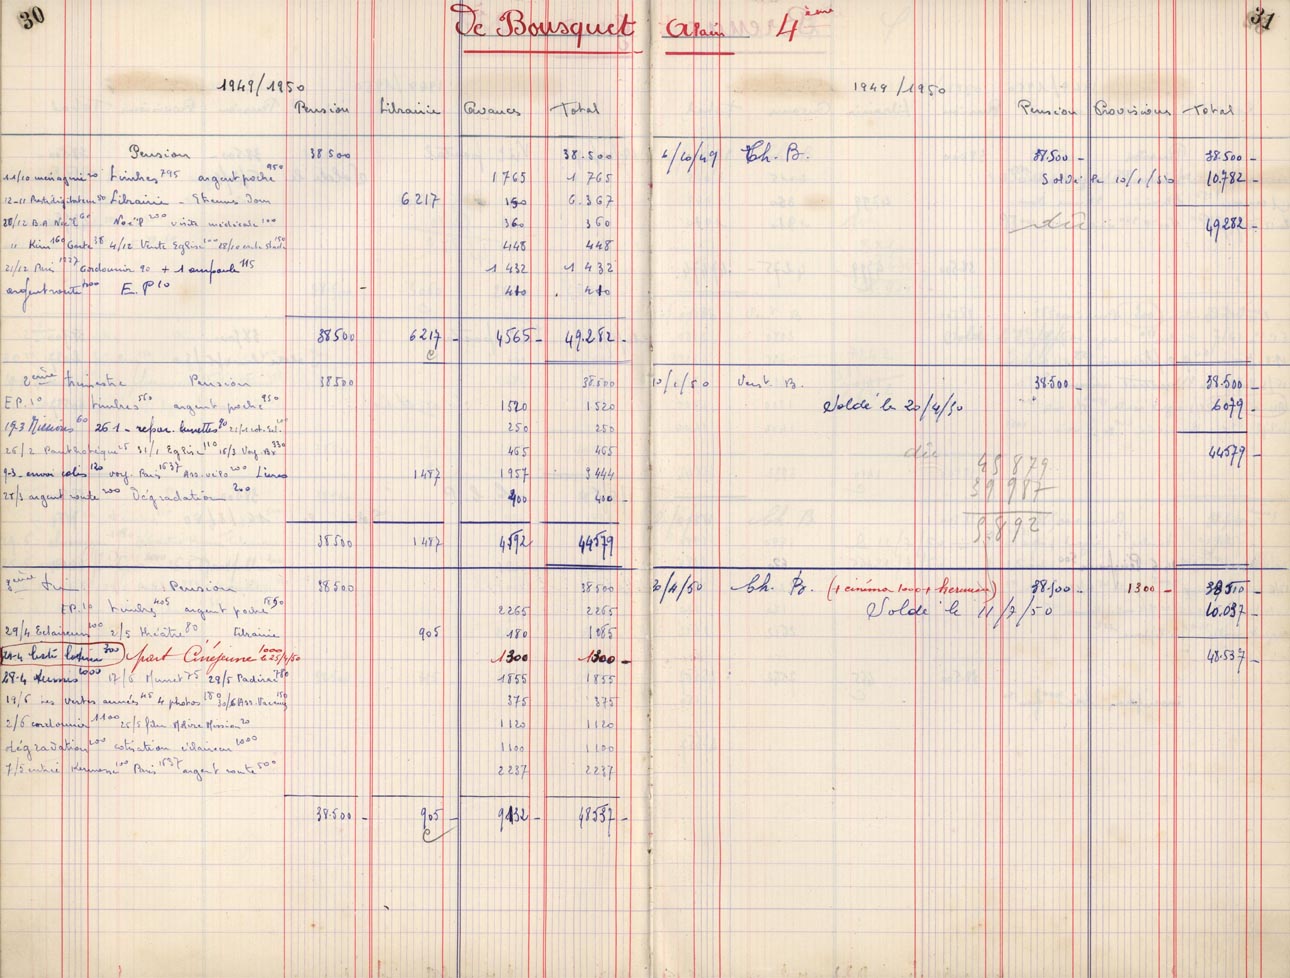 30
De Bousquet Alain 4ème
31
1949/1950
Pension Librairie Avances Total
Pension 38500 38.500
11/10 ménagerie 20 timbres 795 argent poche 950 1765 1765
Librairie - Etienne Dom 6217 150 6.367
20/12 B.A Noël 60 Noël 200 visite médicale 100 360 360
" Kim 160 Carte 38 4/12 Vente Eglise 100 18/10 150 448 448
21/12 Paris 1227 Cordonnier 90 + 1 ampoule 115 1432 1432
argent route 400 E.P 10 410 410
38500 6217 4565 49.282
2ème trimestre Pension 38500 38.500
EP.10 timbres 560 argent poche 950 1520 1520
19-3 Missions 60 26 1 - répar. lunettes 90 250 250
26/2 25 31/1 Eglise 110 16/3 Voy. Bx 330 465 465
9-3 envoi colis 120 voy. Paris 1637 Ass. vélo 200 Livres 1487 1957 3444
28/3 argent route 200 Dégradation 200 400 400
38500 1487 4592 44579
3ème trim Pension 38500 38500
EP.10 timbres 405 argent poche 1850 2265 2265
29/4 Eclaireurs 100 2/5 théâtre 80 Librairie 905 180 1085
300 part Cinéjeune 1000 1300 1300
28-4 1000 17/6 75 29/5 Padirac 780 1855 1855
19/6 Les vertes années 45 4 photos 180 150 375 375
2/6 cordonnier 1100 25/5 Mission 20 1120 1120
dégradation 100 cotisation éclaireur 1000 1100 1100
7/5 entrée Kermesse 100 Paris 1637 argent route 500 2237 2237
38.500 905 9132 48537
1949/1950
Pension Provisions Total
6/10/49 Ch. B. 38.500 38.500
Soldé le 10/1/50 10.782
dû 49282
10/1/50 Vers. B. 38.500 38.500
Soldé le 20/4/50 6079
dû 44579
45 879
39 987
5.892
20/4/50 Ch. B. (+ cinéma 1000 + ) 38.500 1300 38500
Soldé le 11/7/50 10.037
48.537